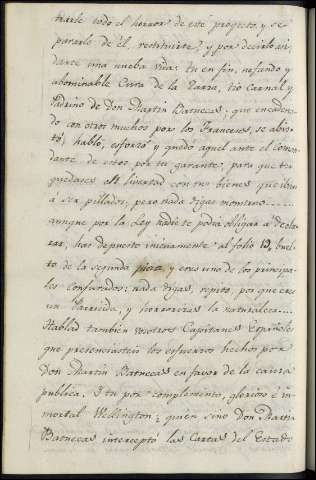 trarle todo el horror de este proyecto, y se
pararle de él, restituirte, y por decirlo asi
darte una nueba vida: tu en fin, nefando y
abominable Cura de la Parra, tio Carnal y
Padrino de Don Martin Batuecas; que encadena
do con otros muchos por los Franceses, se abis
tó, habló, esforzó y quedó aquel ante el Coman
dante de estos por tu garante, para que te
quedases en livertad con tus bienes que iban
á ser pillados; pero nada digas monstruo.....
aunque por la Ley nadie te podia obligar a decla
rar, has depuesto iniquamente al folio 19, buel
to de la segunda pieza, y eres uno de los principa
les conjurados: nada digas, repito, por que eres
un Parricida, y horrorizas la naturaleza.....
Hablad tambien vosotros Capitanes Españoles
que presenciasteis los esfuerzos hechos por
Don Martin Batuecas en favor de la causa
publica. I tu por complemento, glorioso é in
mortal Wellington; quien sino Don Martin
Batuecas interceptó las Cartas del Estado